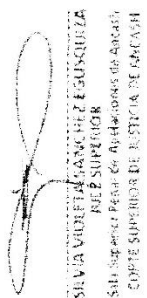 SILVIA VIOLETA SANCHEZ EGUSQUIZA
JUEZ SUPERIOR
Sala Superior Penal de Apelaciones de Ancash
CORTE SUPERIOR DE JUSTICIA DE ANCASH